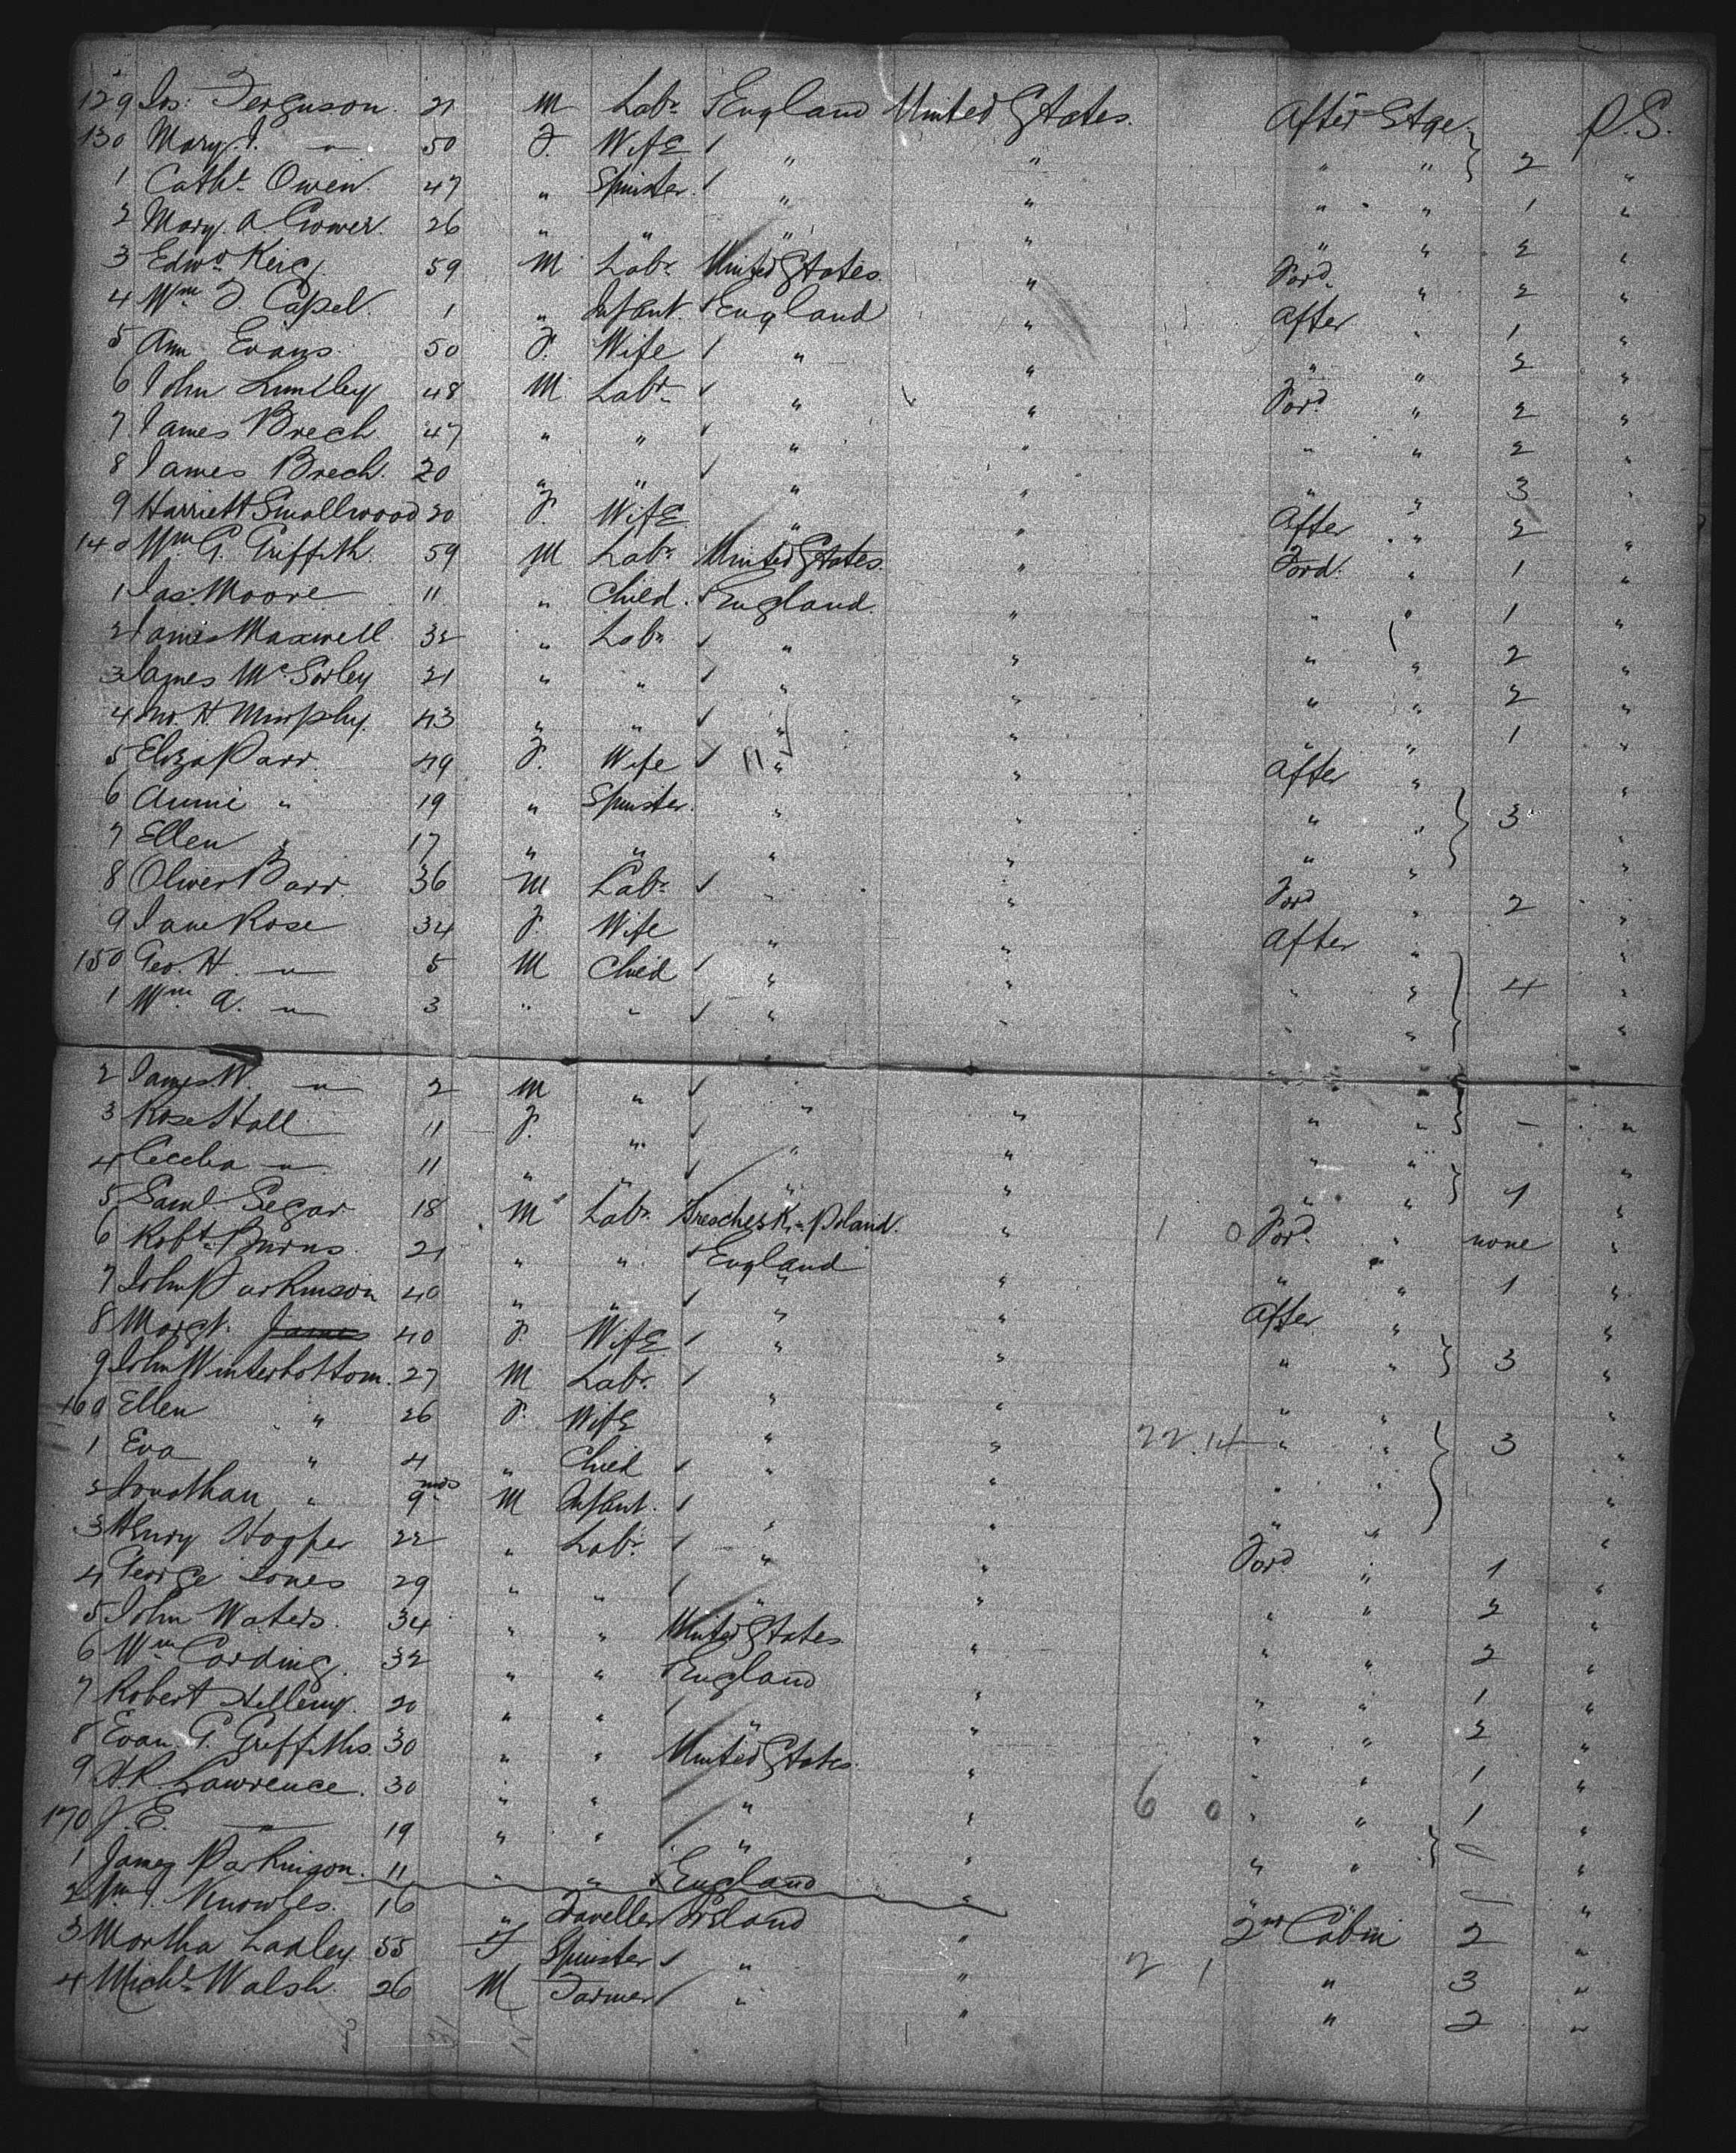 129 Jos: Ferguson. 21 M Labr England United States. After Stge. P.S.
130 Mary J. " 50 F. Wife " " " " 2 "
1 Cathe Owen. 47 " Spinster. " " " " 1 "
2 Mary. A. Gower. 26 " " " " " " 2 "
3 Edwd King. 59 M Labr United States. " Ford. " 2 "
4 Wm J Capel. 1 " Infant England " After " 1 "
5 Ann Evans. 50 F. Wife " " " " 2 "
6 John Luntley 48 M. Labr " " Ford " 2 "
7 James Brech 47 " " " " " " 2 "
8 James Brech. 20 " " " " " " 3 "
9 Harriett Smallwood 20 F. Wife " " After " 2 "
140 Wm G. Griffith. 59 M Labr United States. " Ford. " 1 "
1 Jas: Moore 11 " Child. England. " " " 1 "
2 James Maxwell 32 " Labr " " " " 2 "
3 James McSorley 21 " " " " " " 2 "
4 Jno. H. Murphy. 43 " " " " " " 1 "
5 Eliza Parr 49 F. Wife " " After " "
6 Annie " 19 " Spinster. " " " " 3 "
7 Ellen " 17 " " " " " " "
8 Oliver Barr. 36 M Labr " " Ford " 2 "
9 Jane Rose 34 F. Wife " " After " "
150 Geo. H. " 5 M Child " " " " 4 "
1 Wm A. " 3 " " " " " " "
2 James W. " 2 M " " " " " — "
3 Rose Hall 11 F. " " " " " "
4 Cecelia " 11 " " " " " " 1 "
5 Saml Segar 18 M Labr Poland. " 1 0 Ford. " none "
6 Robt Burns. 21 " " England " " " 1 "
7 John Parkinson 40 " " " " After " "
8 Margt. James 40 F. Wife " " " " 3 "
9 John Winterbottom. 27 M Labr. " " " " "
160 Ellen " 26 F. Wife " " 22.14 " " 3 "
1 Eva " 4 " Child " " " " "
2 Jonathan " 9 mos M Infant. " " " " "
3 Henry Hooper 22 " Labr. " " Ford " 1 "
4 George Jones 29 " " " " " " 2 "
5 John Waters. 34 " " United States " " " 2 "
6 Wm Carding. 32 " " England " " " 1 "
7 Robert 20 " " " " " " 2 "
8 Evan. G. Griffiths. 30 " " United States. " " " 1 "
9 H.R. Lawrence. 30 " " " " 6 0 " " 1 "
170 J. E. " 19 " " " " " " — "
1 James Parkinson. 11 " " England " " " — "
2 Wm J. Knowles. 16 " Traveller Ireland " 2nd Cabin 2 "
3 Martha 55 F Spinster " " 2 1 " 3 "
4 Michl Walsh. 26 M Farmer " " " 2 "